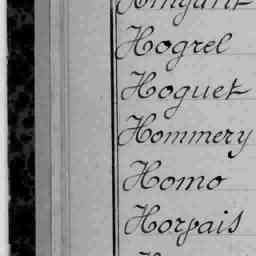 Hogrel
Hoguet
Hommery
Homo
Horpais